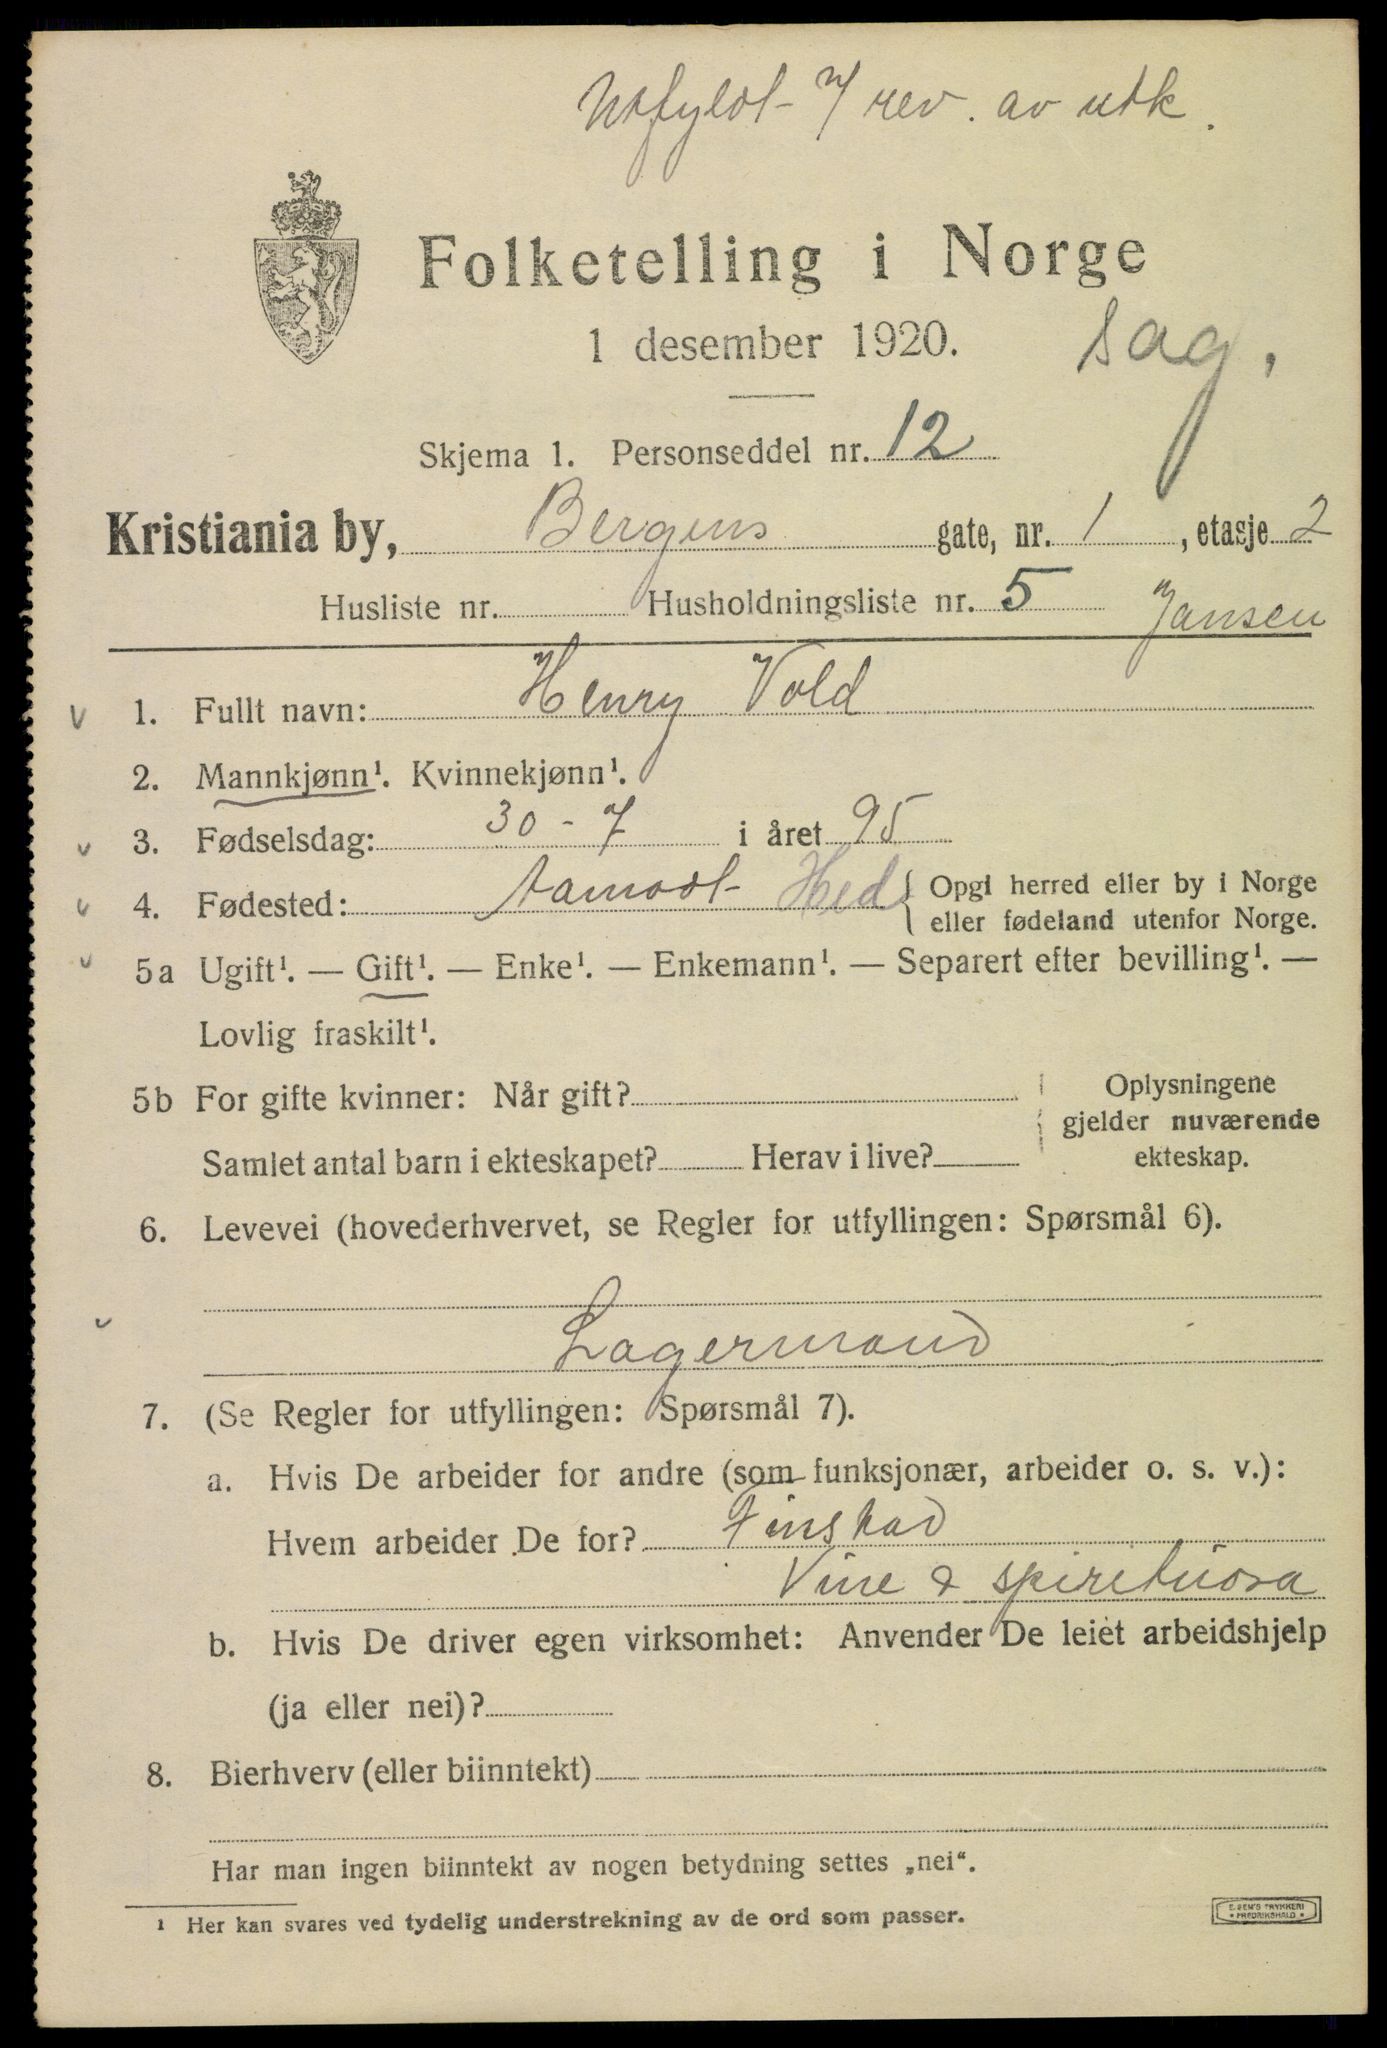 Utfyldt rev. av utk.
Folketelling i Norge
1 desember 1920.
Sag.
Skjema 1. Personseddel nr. 12
Kristiania by, Bergens gate, nr. 1, etasje 2
Husliste nr. Husholdningsliste nr. 5 Jansen
1. Fullt navn: Henry Vold
2. Mannkjønn¹. Kvinnekjønn¹.
3. Fødselsdag: 30-7 i året 95
4. Fødested: Aamodt Hed { Opgi herred eller by i Norge
eller fødeland utenfor Norge.
5a Ugift¹. — Gift¹. — Enke¹. — Enkemann¹. — Separert efter bevilling¹. —
Lovlig fraskilt¹.
5b For gifte kvinner: Når gift?
Samlet antal barn i ekteskapet? Herav i live?
Oplysningene
gjelder nuværende
ekteskap.
6. Levevei (hovederhvervet, se Regler for utfyllingen: Spørsmål 6).
Lagermand
7. (Se Regler for utfyllingen: Spørsmål 7).
a. Hvis De arbeider for andre (som funksjonær, arbeider o. s. v.):
Hvem arbeider De for? Finstad
Vine & spirituosa
b. Hvis De driver egen virksomhet: Anvender De leiet arbeidshjelp
(ja eller nei)?
8. Bierhverv (eller biinntekt)
Har man ingen biinntekt av nogen betydning settes „nei“.
¹ Her kan svares ved tydelig understrekning av de ord som passer.
E. SEM'S TRYKKERI
FREDRIKSHALD